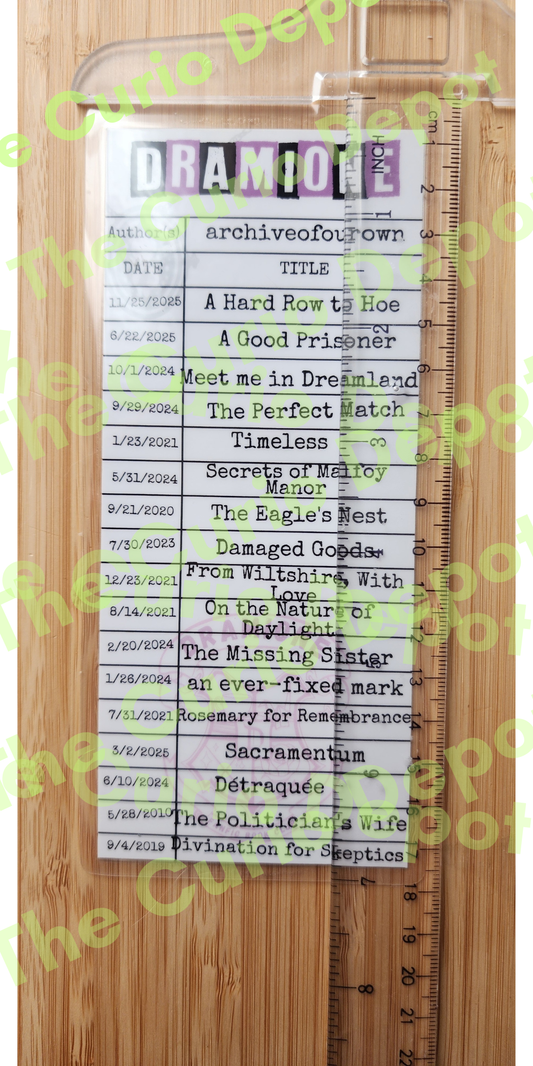 The Curio Depot
DRAMIONE
Author(s) archiveofourown
DATE TITLE
11/25/2025 A Hard Row to Hoe
6/22/2025 A Good Prisoner
10/1/2024 Meet me in Dreamland
9/29/2024 The Perfect Match
1/23/2021 Timeless
5/31/2024 Secrets of Malfoy
Manor
9/21/2020 The Eagle's Nest
7/30/2023 Damaged Goods
12/23/2021 From Wiltshire, With
Love
8/14/2021 On the Nature of
Daylight
2/20/2024 The Missing Sister
1/26/2024 an ever-fixed mark
7/31/2021 Rosemary for Remembrance
3/2/2025 Sacramentum
6/10/2024 Détraquée
5/28/2010 The Politician's Wife
9/4/2019 Divination for Skeptics
cm 1 2 3 4 5 6 7 8 9 10 11 12 13 14 15 16 17 18 19 20 21 22
INCH 1 2 3 4 5 6 7 8
The Curio Depot
The Curio Depot
The Curio Depot
The Curio Depot
The Curio Depot